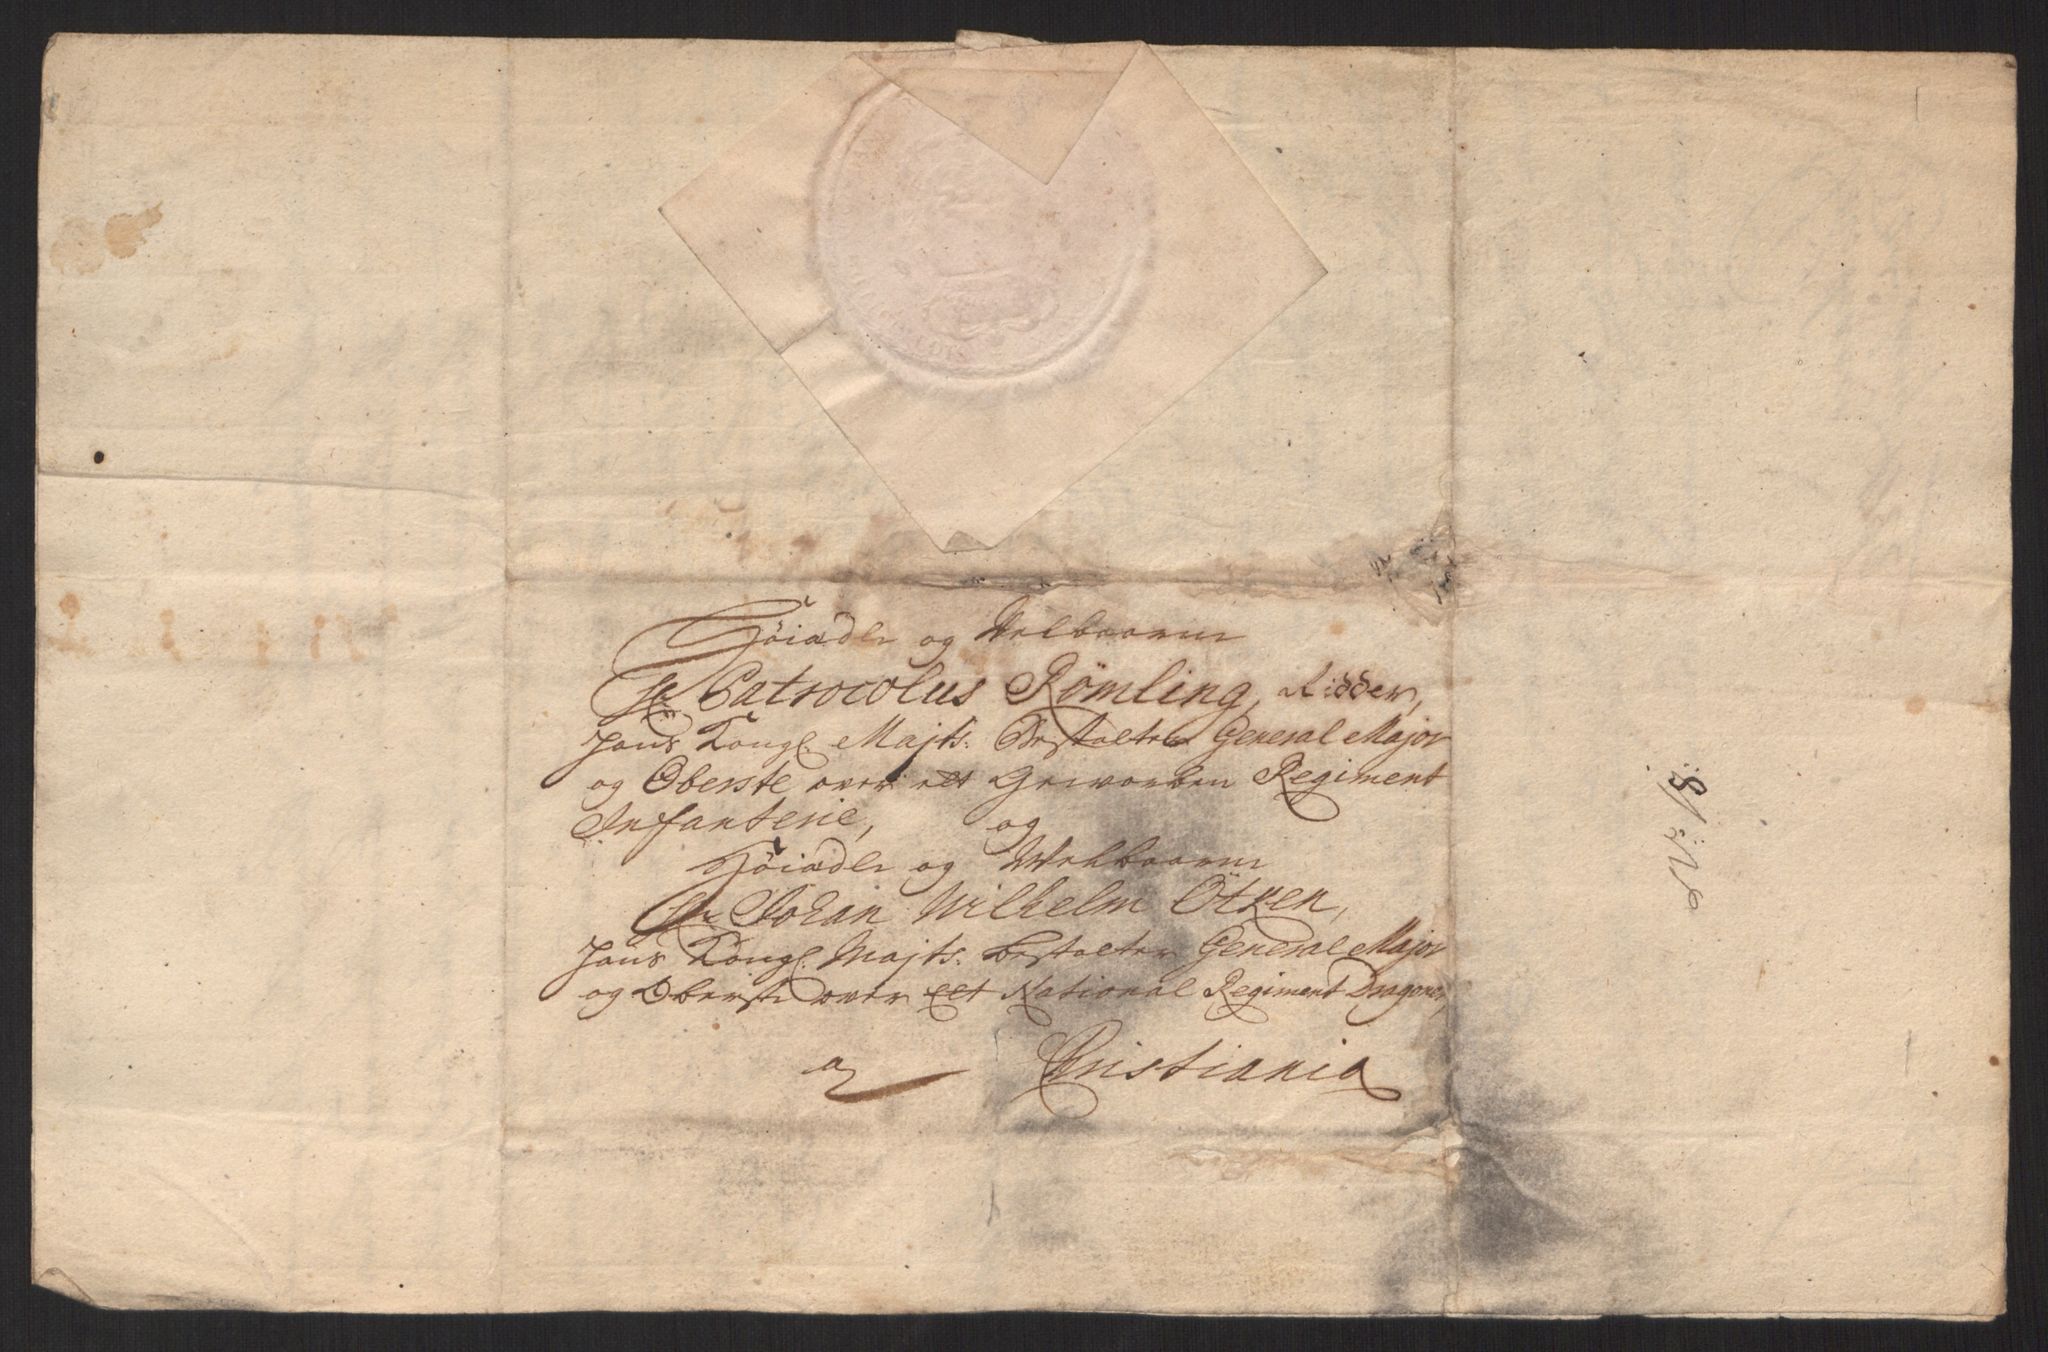 Höiædle og Velbaarne
Hr Patrocolus Römling, Ridder,
Hans Kongl. Majts. Bestalter General Major
og Oberste over ett Geworben Regiment
Infanterie, og
Höiædle og Welbaarne
Hr Johan Wilhelm Ötken,
Hans Kongl. Majts. bestalter General Major
og Oberste over ett National Regiment Dragoner,
a Christiania
No: 18: